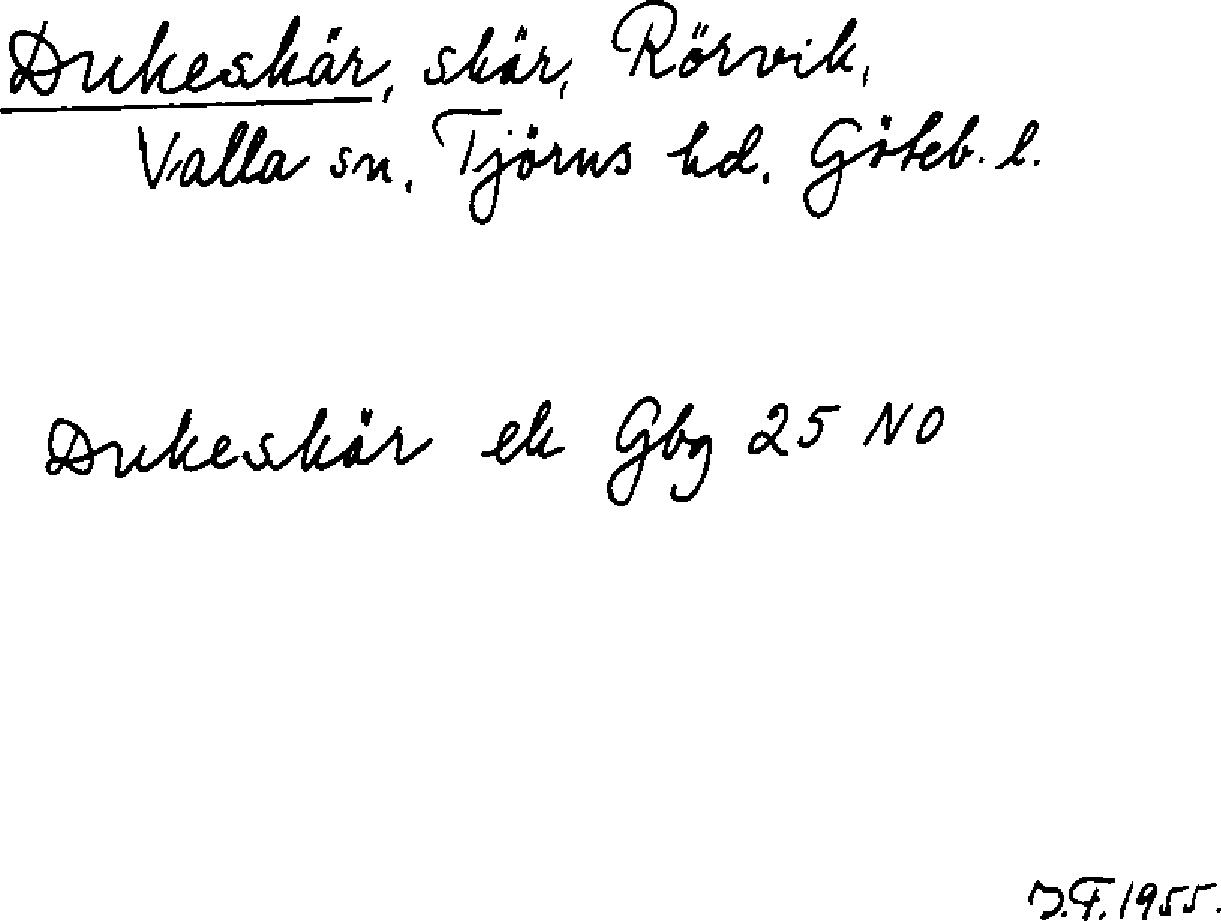 Dukeskär, skär, Rörvik,
Valla sn. Tjörns hd. Göteb. l.
Dukeskär ek Gbg 25 NO
J.F. 1955.